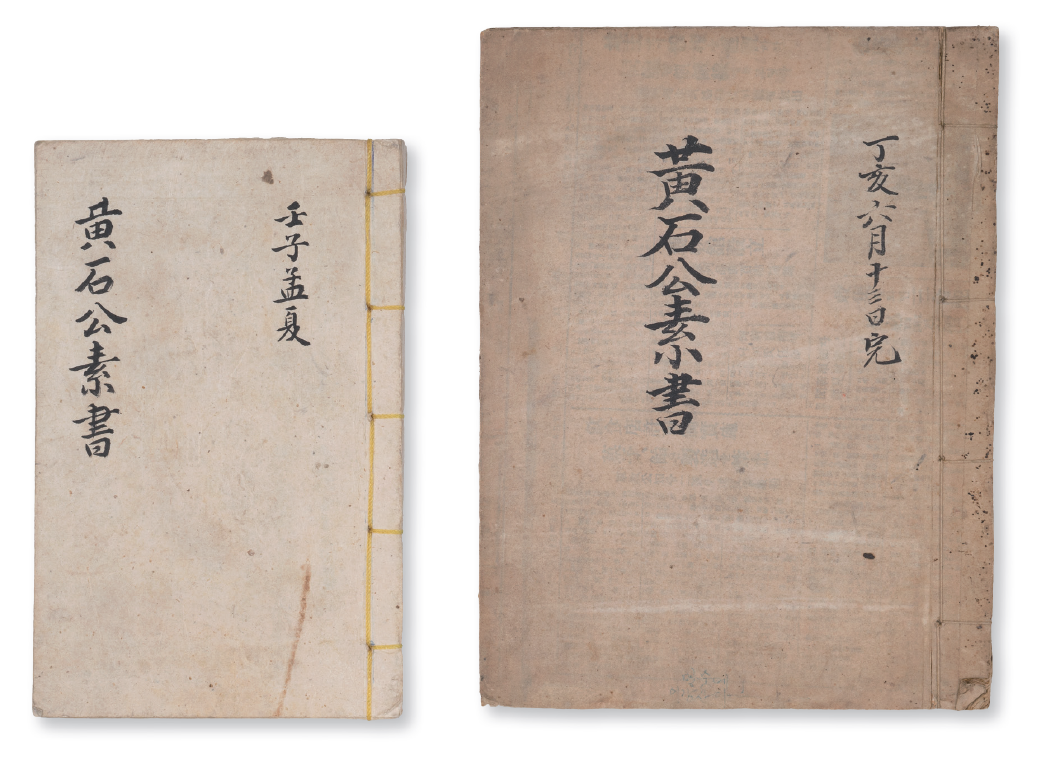 壬子孟夏
黃石公素書
丁亥六月十三日完
黃石公素書